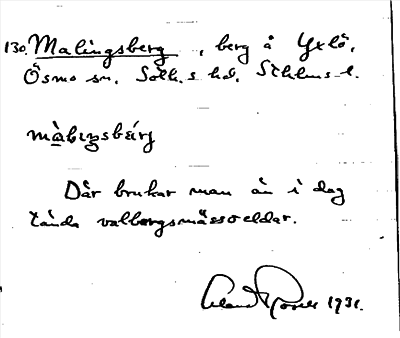 130. Malingsberg, berg å Yxlö,
Ösmo sn. Soth.s hd. Sthlms l.
màlıŋsbærg
Där brukar man än i dag
tända valborgsmässoeldar.
1931.